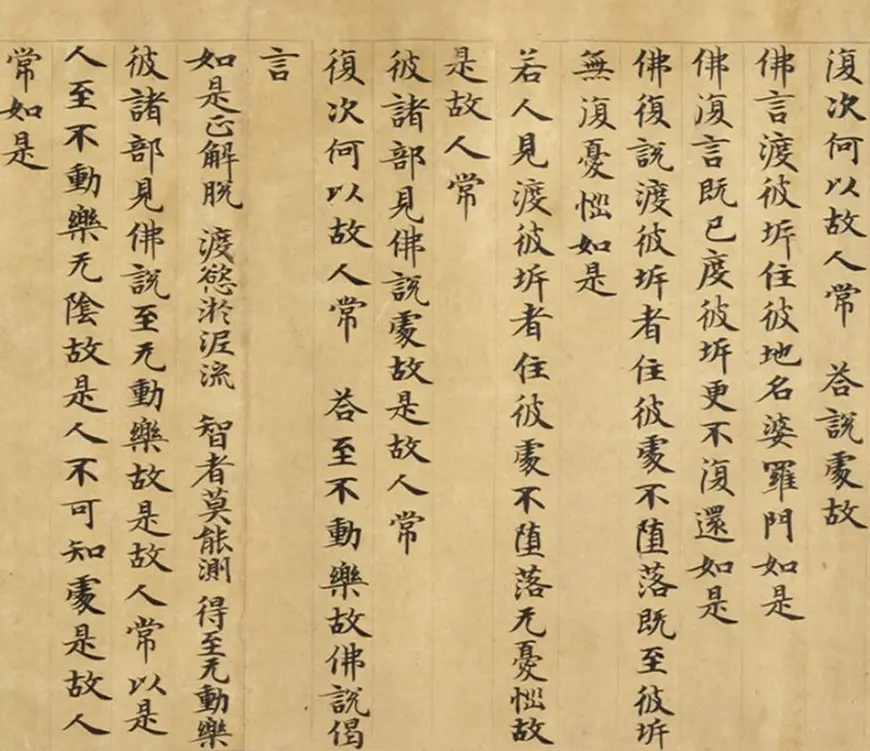 復次何以故人常　荅説處故
佛言渡彼坼住彼地名婆羅門如是
佛復言既已度彼坼更不復還如是
佛復説渡彼坼者住彼處不堕落既至彼坼
無復憂惱如是
若人見渡彼坼者住彼處不堕落无憂惱故
是故人常
彼諸部見佛説處故是故人常
復次何以故人常　荅至不動樂故佛説偈
言
如是正解脱　渡慾淤泥流　智者莫能測　得至无動樂
彼諸部見佛説至无動樂故是故人常以是
人至不動樂无陰故是人不可知處是故人
常如是